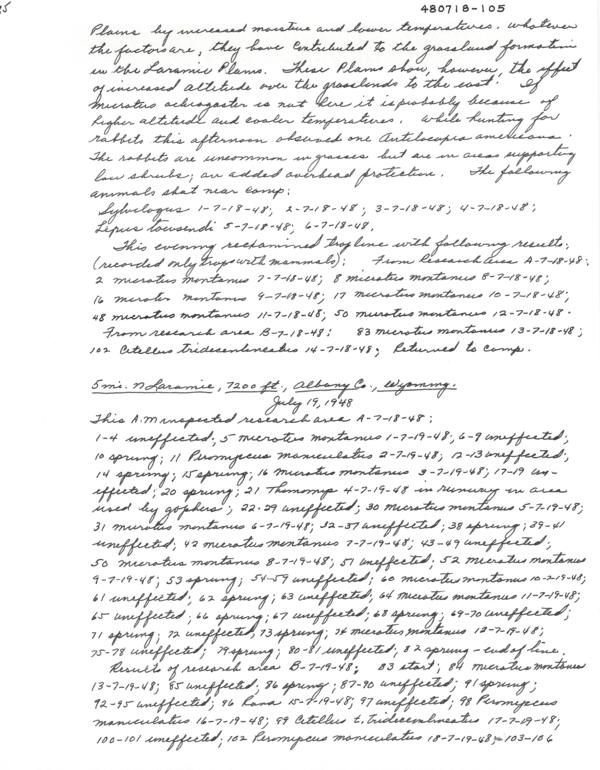 480718-105
Plains by increased moisture and lower temperatures. Whatever
the factors are, they have contributed to the grassland formation
in the Laramie Plains. These Plains show, however, the effect
of increased altitude over the grasslands to the east. If
Microtus ochrogaster is not here it is probably because of
higher altitude and cooler temperatures. While hunting for
rabbits this afternoon observed one Antilocapra americana.
The rabbits are uncommon in grasses but are in areas supporting
low shrubs; an added overhead protection. The following
animals shot near camp:
Sylvilagus 1-7-18-48; 2-7-18-48; 3-7-18-48; 4-7-18-48;
Lepus townsendi 5-7-18-48; 6-7-18-48.
This evening reexamined trap line with following results:
(recorded only traps with mammals): From Research area A-7-18-48:
2 microtus montanus 7-7-18-48; 8 microtus montanus 8-7-18-48;
16 microtus montanus 9-7-18-48; 17 microtus montanus 10-7-18-48;
48 microtus montanus 11-7-18-48; 50 microtus montanus 12-7-18-48.
From research area B-7-18-48: 83 microtus montanus 13-7-18-48;
102 Citellus tridecemlineatus 14-7-18-48; Returned to camp.
5 mi. N Laramie, 7200 ft., Albany Co., Wyoming.
July 19, 1948
This A.M inspected research area A-7-18-48:
1-4 uneffected; 5 microtus montanus 1-7-19-48; 6-9 uneffected;
10 sprung; 11 Peromyscus maniculatus 2-7-19-48; 12-13 uneffected;
14 sprung; 15 sprung; 16 microtus montanus 3-7-19-48; 17-19 un-
effected; 20 sprung; 21 Thomomys 4-7-19-48 in runway in area
used by gophers; 22-29 uneffected; 30 microtus montanus 5-7-19-48;
31 microtus montanus 6-7-19-48; 32-37 uneffected; 38 sprung; 39-41
uneffected; 42 microtus montanus 7-7-19-48; 43-49 uneffected;
50 microtus montanus 8-7-19-48; 51 uneffected; 52 microtus montanus
9-7-19-48; 53 sprung; 54-59 uneffected; 60 microtus montanus 10-7-19-48;
61 uneffected; 62 sprung; 63 uneffected; 64 microtus montanus 11-7-19-48;
65 uneffected; 66 sprung; 67 uneffected; 68 sprung; 69-70 uneffected;
71 sprung; 72 uneffected; 73 sprung; 74 microtus montanus 12-7-19-48;
75-78 uneffected; 79 sprung; 80-81 uneffected; 82 sprung - end of line.
Results of research area B-7-19-48; 83 start; 84 microtus montanus
13-7-19-48; 85 uneffected; 86 sprung; 87-90 uneffected; 91 sprung;
92-95 uneffected; 96 Rana 15-7-19-48; 97 uneffected; 98 Peromyscus
maniculatus 16-7-19-48; 99 Citellus t. tridecemlineatus 17-7-19-48;
100-101 uneffected; 102 Peromyscus maniculatus 18-7-19-48; 103-106